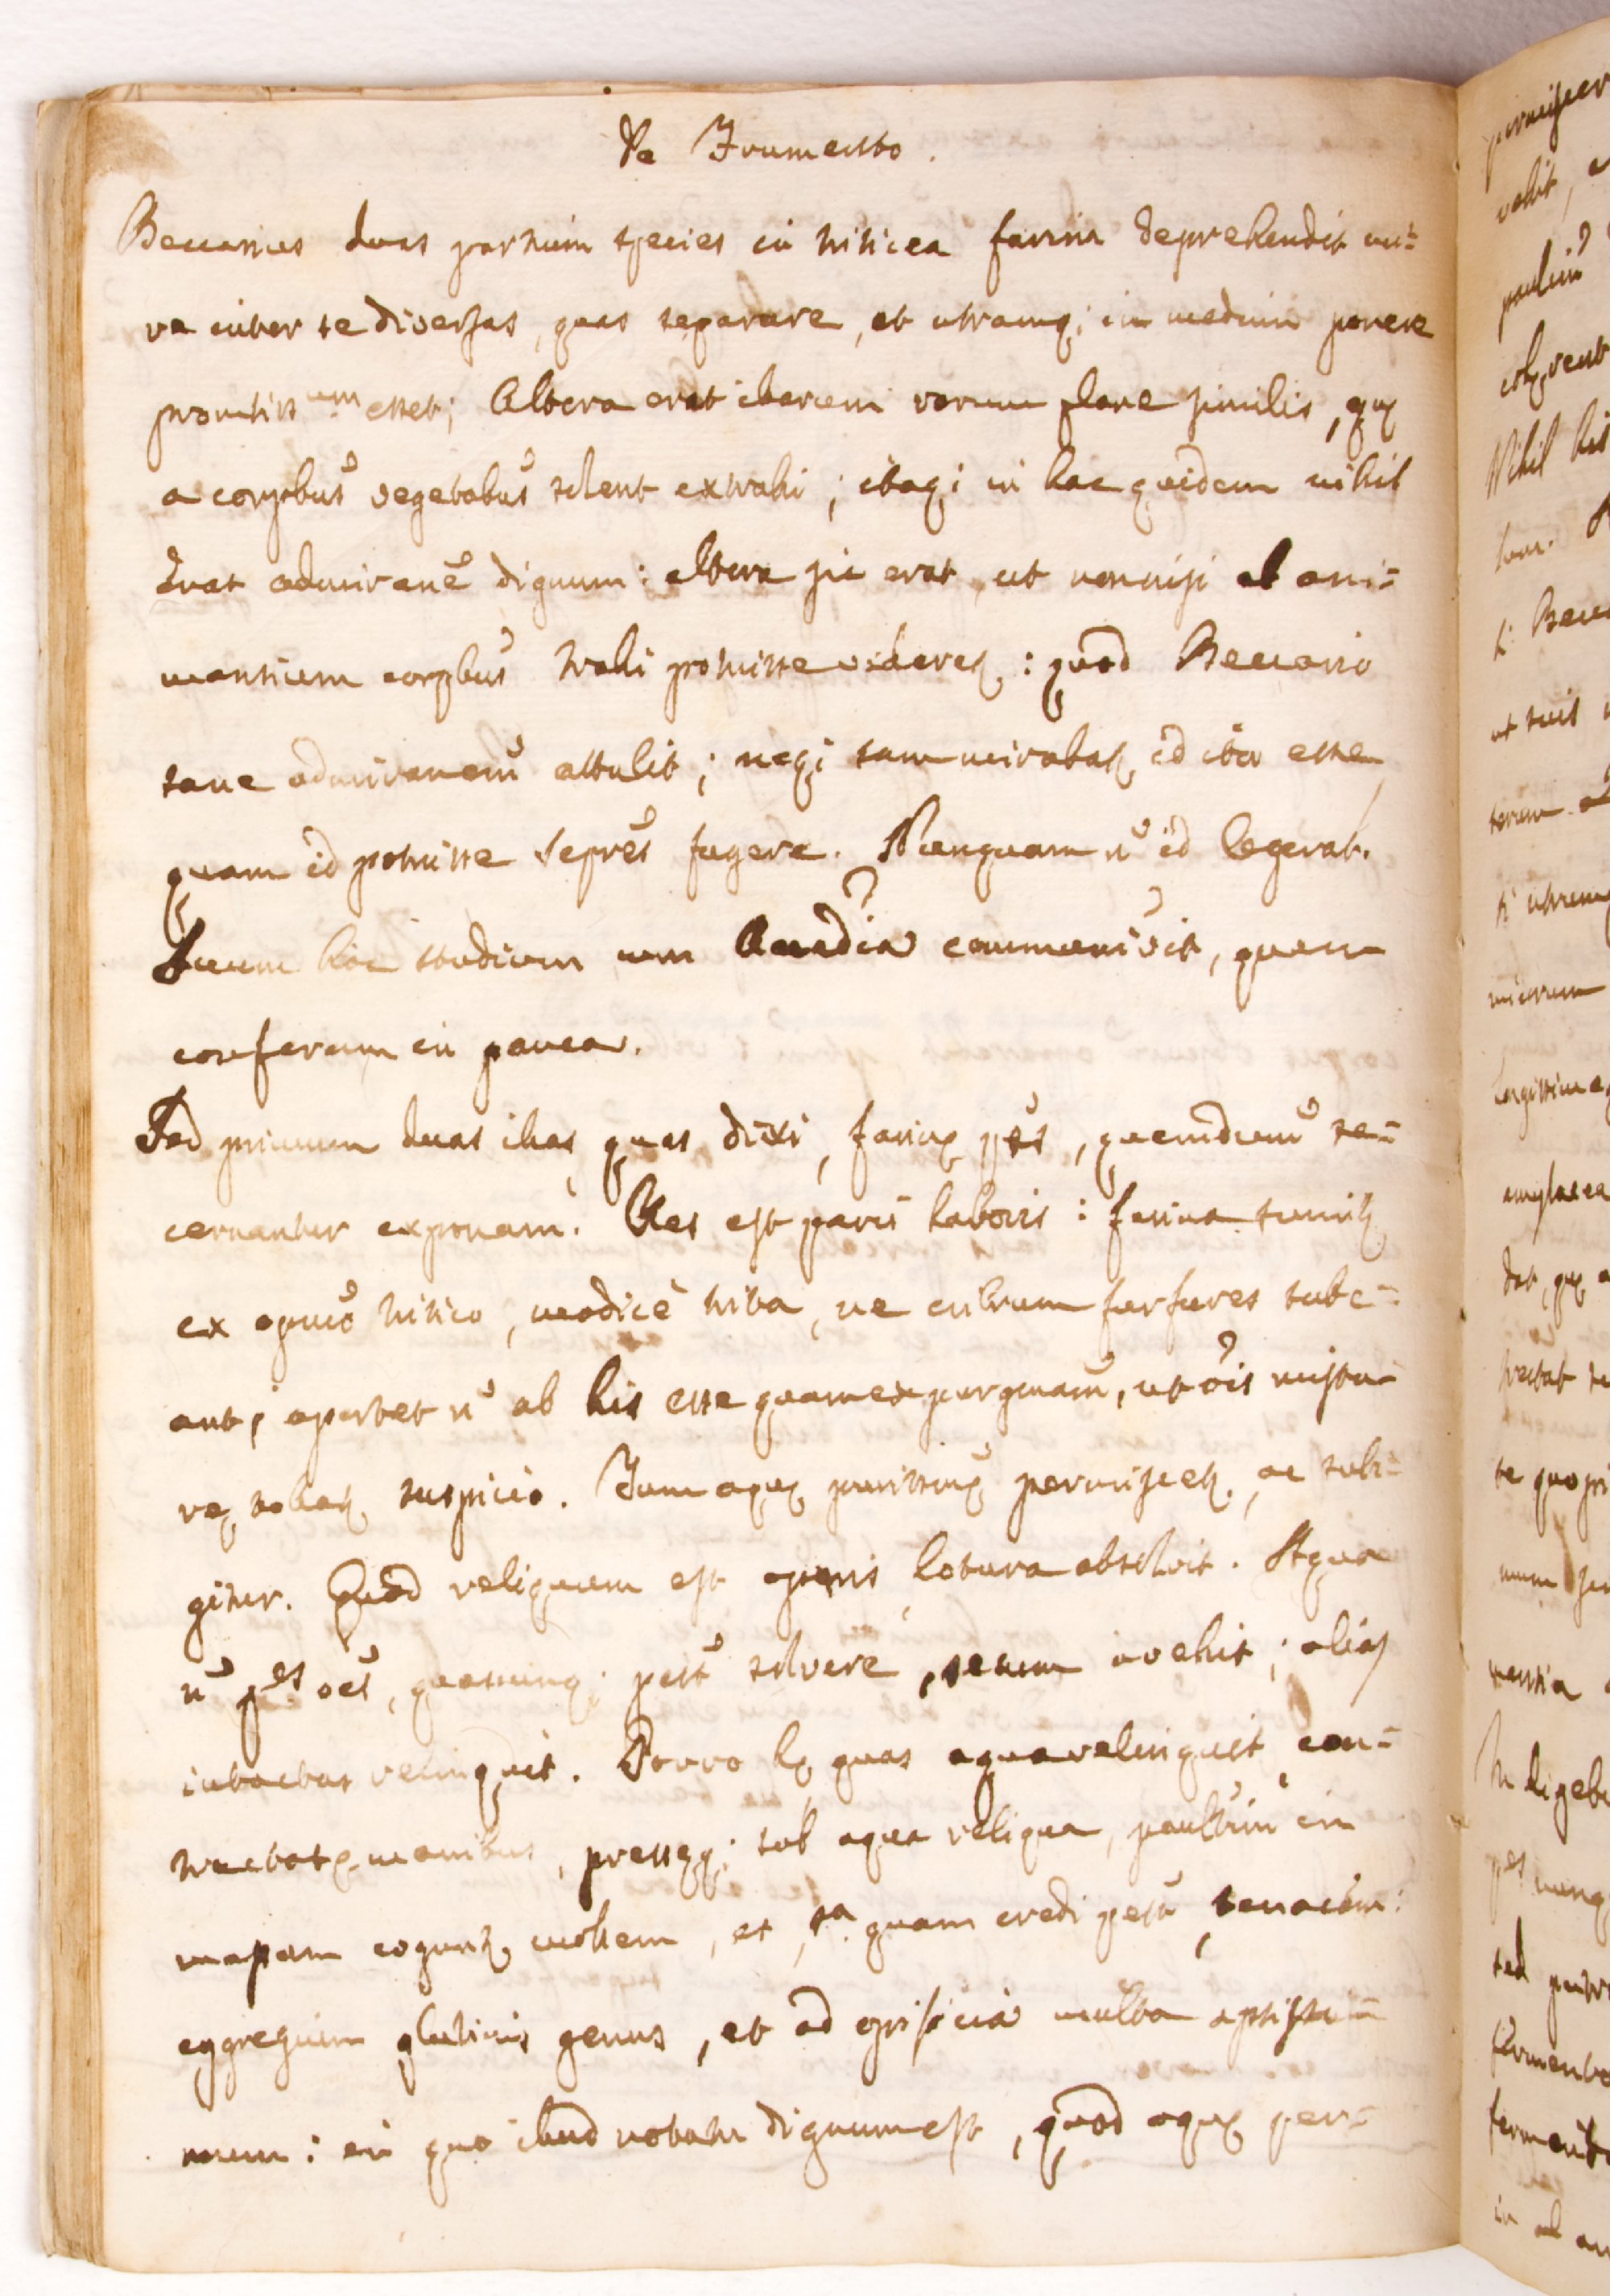 De Frumento.
Beccarius duas partium species in triticea farina deprehendit mi=
re inter se diversas, quas separare, et utramq; in medium ponere
promtiss um esset; Altera erat illarum rerum plane similis, quę
a corpbus vegetabus solent extrahi; itaq; in hac quidem nihil
erat admirane dignum: altera sic erat, ut nonnisi ab ani=
mantium corpbus trahi potuisse videret: quod Beccario
sane admiranem attulit; neq; tam mirabat id ita esse,
quam id potuisse fugere. Nunquam n id legerat.
Suum hoc studium cum communivit, quem
conferam in pauca.
Sed primum duas illas, quas dixi, farinę ptes, quemdum se=
cernantur exponam. Res est parvi laboris: farina sumit
ex opmo tritico, modice trita, ne cribrum furfures sube=
ant; oportet n ab his esse quam expurgmam, ut ois mistu=
rę tollat suspicio. Tum aquę purissimę permiscet, ac subi=
gitur. Quod reliquum est operis lotura absolvit. Aqua
n ptes oes, quascunq; pest solvere, secum avehit; alias
intactas relinquit. Porro hę quas aqua relinquit, con=
trectatę manibus, pressęq; sub aqua reliqua, paullim in
massam cogunt mollem, et, sa quam credi pest, tenacem:
eggregium glutinis genus, et ad opificia multa aptissi=
mum: in quo illud notatu dignum est, quod aquę per=